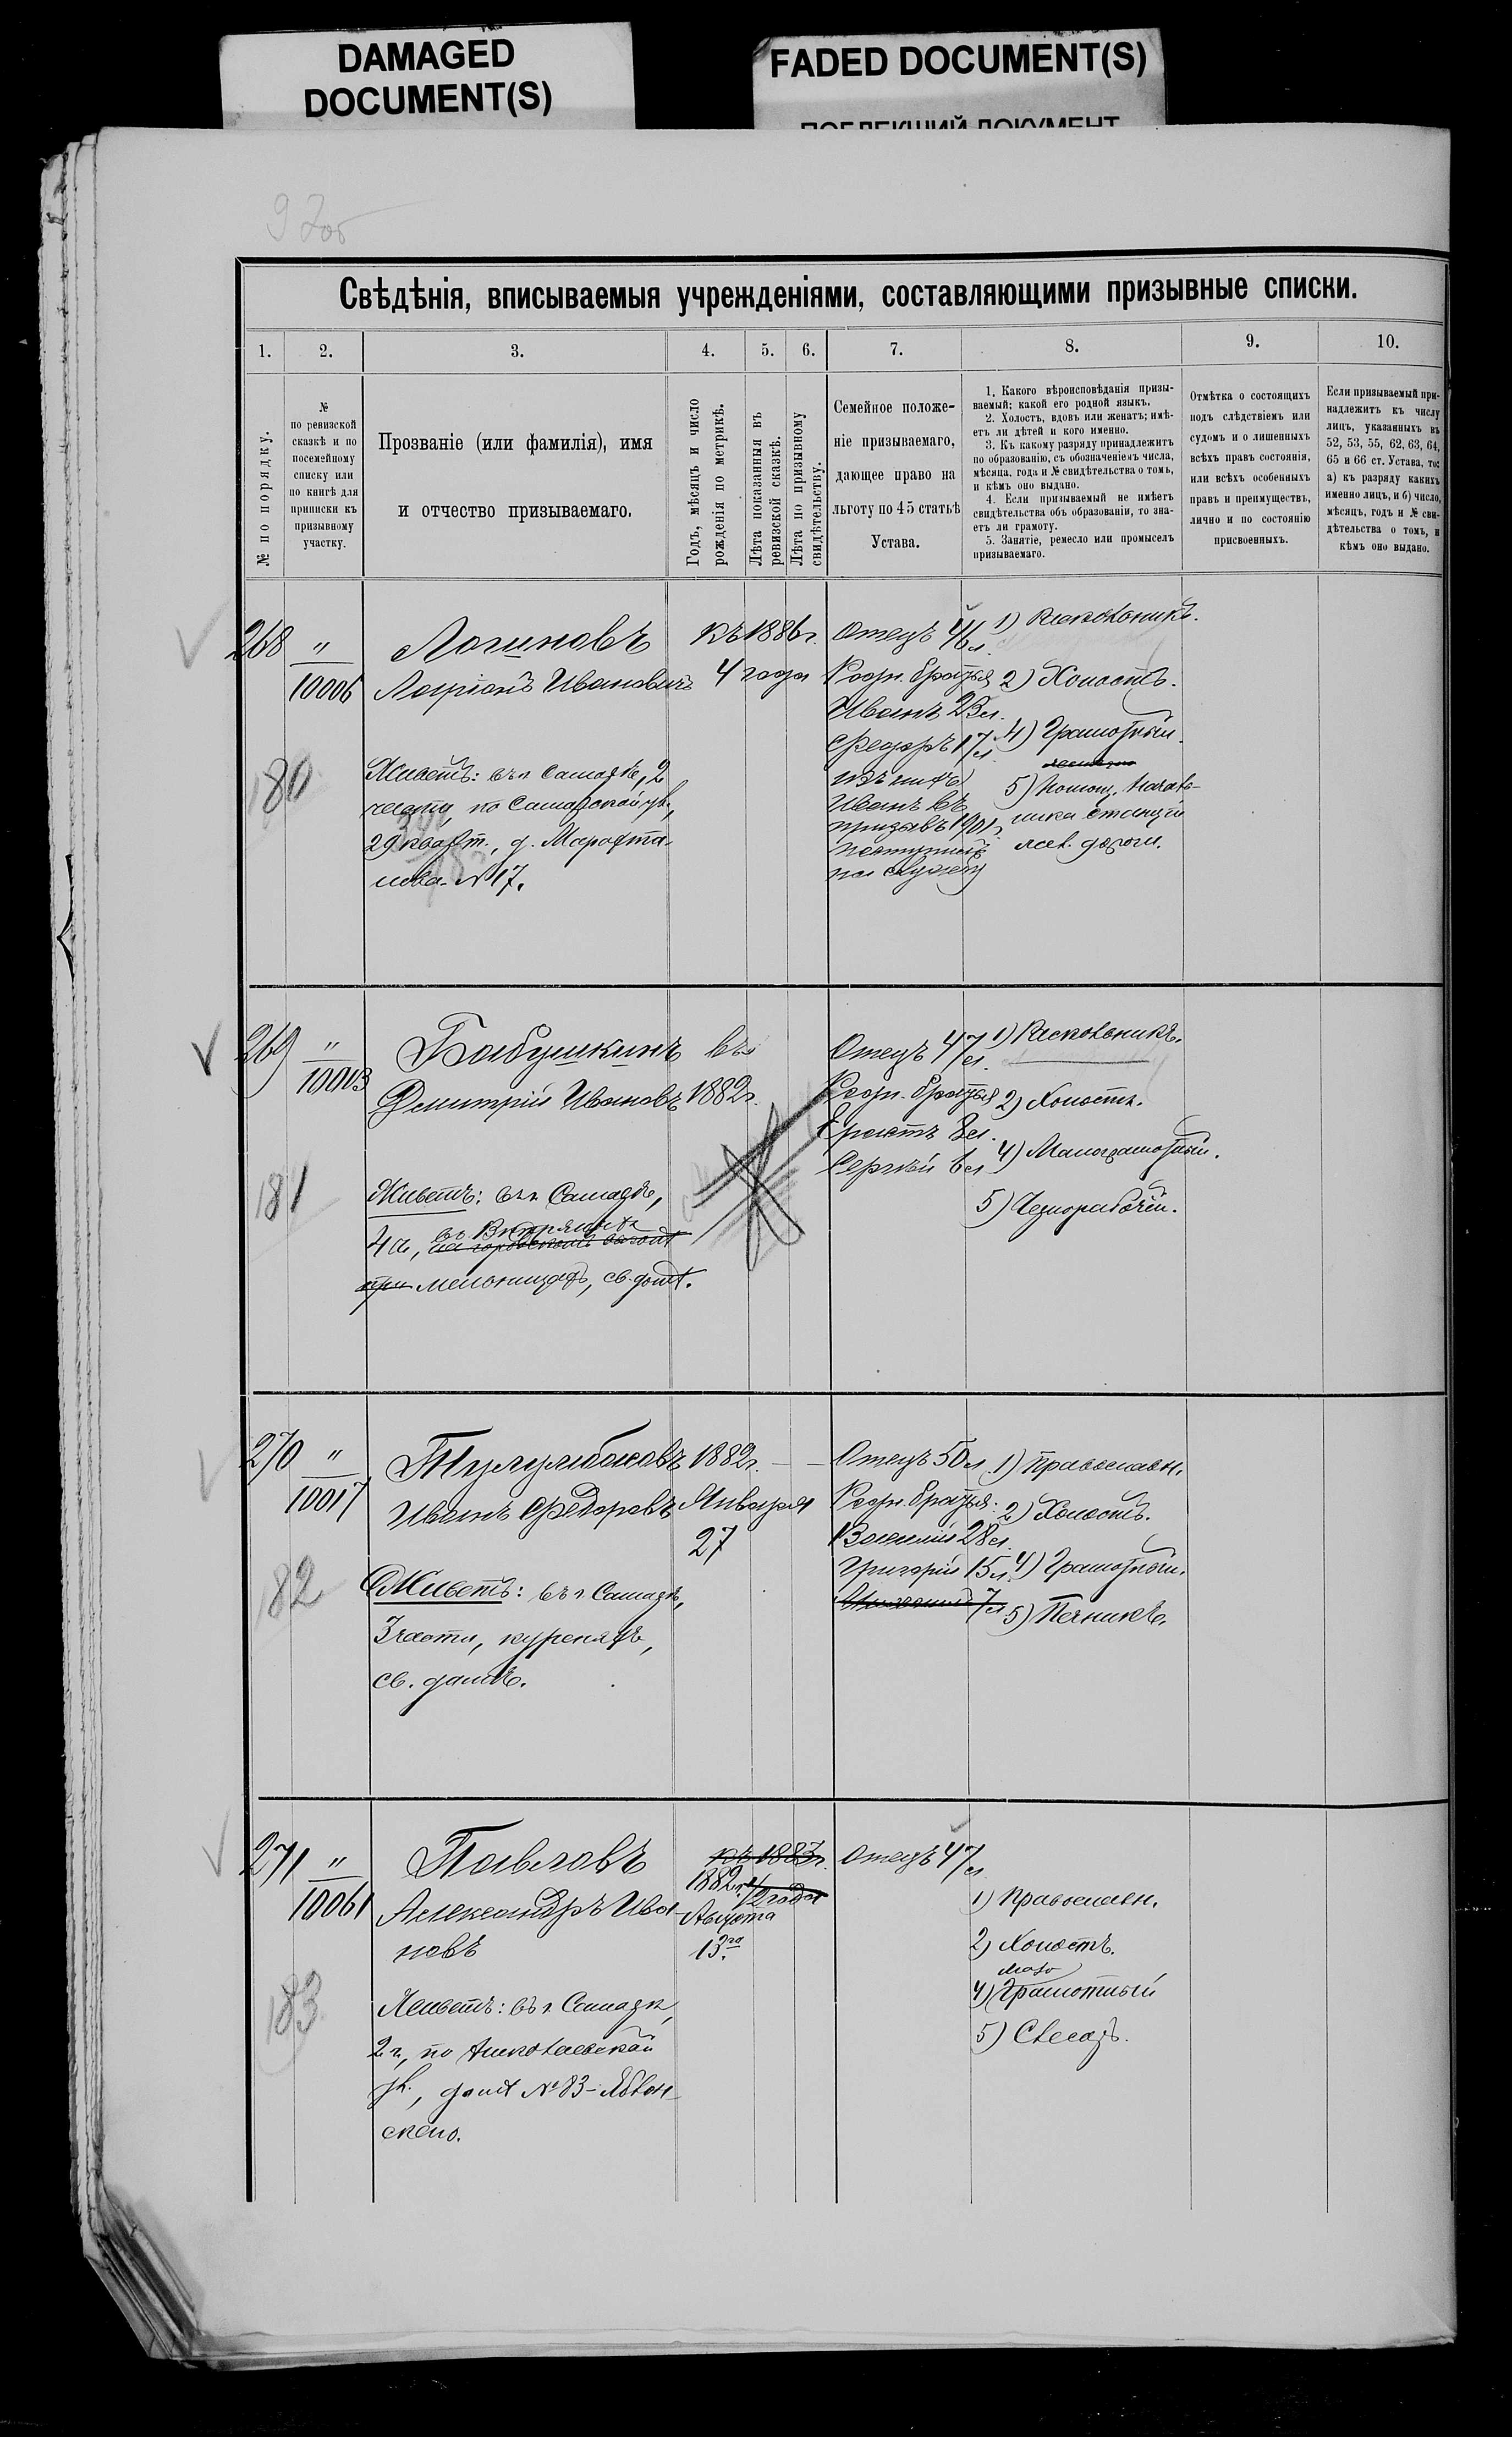 DAMAGED
DOCUMENT(S)
FADED DOCUMENT(S)
ПОБЛЕКШИЙ ДОКУМЕНТ
97об
Свѣдѣнія, вписываемыя учрежденіями, составляющими призывные списки.
1. 2. 3. 4. 5. 6. 7. 8. 9. 10.
№ по порядку.
№
по ревизской
сказкѣ и по
посемейному
списку или
по книгѣ для
приписки къ
призывному
участку.
Прозваніе (или фамилія), имя
и отчество призываемаго.
Годъ, мѣсяцъ и число
рожденія по метрикѣ.
Лѣта показанныя въ
ревизской сказкѣ.
Лѣта по призывному
свидѣтельству.
Семейное положе-
ніе призываемаго,
дающее право на
льготу по 45 статьѣ
Устава.
1. Какого вѣроисповѣданія призы-
ваемый; какой его родной языкъ.
2. Холостъ, вдовъ или женатъ; имѣ-
етъ ли дѣтей и кого именно.
3. Къ какому разряду принадлежитъ
по образованію, съ обозначеніемъ числа,
мѣсяца, года и № свидѣтельства о томъ,
и кѣмъ оно выдано.
4. Если призываемый не имѣетъ
свидѣтельства объ образованіи, то зна-
етъ ли грамоту.
5. Занятіе, ремесло или промыселъ
призываемаго.
Отмѣтка о состоящихъ
подъ слѣдствіемъ или
судомъ и о лишенныхъ
всѣхъ правъ состоянія,
или всѣхъ особенныхъ
правъ и преимуществъ,
лично и по состоянію
присвоенныхъ.
Если призываемый при-
надлежитъ къ числу
лицъ, указанныхъ въ
52, 53, 55, 62, 63, 64,
65 и 66 ст. Устава, то:
а) къ разряду какихъ
именно лицъ, и б) число,
мѣсяцъ, годъ и № сви-
дѣтельства о томъ, и
кѣмъ оно выдано.
268 "
10006
180
Логиновъ
Ларіонъ Ивановичъ
Живетъ: въ г. Самарѣ, 2
части, по Самарской ул.,
29 кварт., д.
№ 17.
къ 1886 г.
4 года
Отецъ 46 л.
Родн. братья
Иванъ 23 л.
Федоръ 17 л.
изъ нихъ
Иванъ въ
призывъ 1901 г.
поступилъ
на службу
1) Раскольникъ.
2) Холостъ.
4) Грамотный.
5) Помощ. Началь-
ника станціи
жел. дороги.
269 "
10013
181
Бабушкинъ
Димитрій Ивановъ
Живетъ: въ г. Самарѣ,
4 ч.,
при мельницахъ, св. домъ.
въ
1882 г.
Отецъ 47 л.
Родн. братья
8 л.
Сергѣй 6 л.
1) Раскольникъ.
2) Холостъ.
4) Малограмотный.
5) Чернорабочій.
270 "
10017
182
Иванъ Федоровъ
Живетъ: въ г. Самарѣ,
3 части, куреняхъ,
св. домѣ.
1882 г.
Января
27
Отецъ 50 л.
Родн. братья:
Василій 28 л.
Григорій 15 л.
7 л.
1) Православн.
2) Холостъ.
4) Грамотный.
5) Печникъ.
271 "
10061
183
Павловъ
Александръ Ива-
новъ
Живетъ: въ г. Самарѣ,
2 ч., по Николаевской
ул., домъ № 83 – Яблон-
скаго.
къ 1883 г.
1882 г. 1/2 года
Августа
13го
Отецъ 47 л.
1) Православн.
2) Холостъ.
мало
4) Грамотный
5) Слесарь.